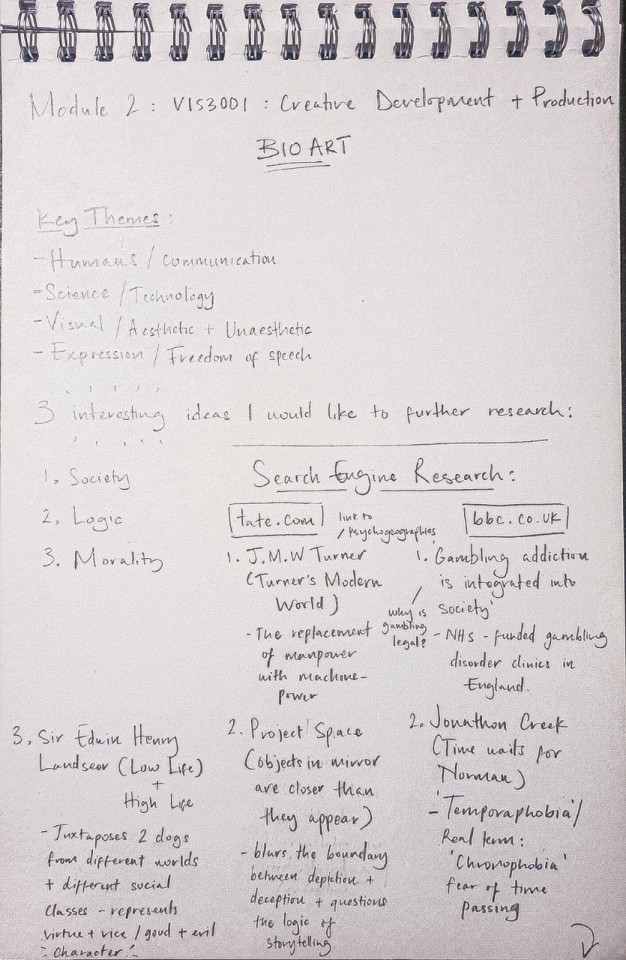 Module 2 : VIS3001 : Creative Development + Production
BIO ART
Key Themes :
- Humans / communication
- Science / Technology
- Visual / Aesthetic + Unaesthetic
- Expression / Freedom of speech
3 interesting ideas I would like to further research :
1. Society
2. Logic
3. Morality
Search Engine Research :
tate.com
link to
/ Psychogeographies
1. J.M.W Turner
(Turner's Modern
World)
- The replacement
of manpower
with machine-
power
bbc.co.uk
1. Gambling addiction
is integrated into
society'
why is
gambling
legal?
- NHS - funded gambling
disorder clinics in
England.
3. Sir Edwin Henry
Landseer (Low Life)
+
High Life
- Juxtaposes 2 dogs
from different worlds
+ different social
classes - represents
virtue + vice / good + evil
character.
2. Project Space
(objects in mirror
are closer than
they appear)
- blurs the boundary
between depiction +
deception + questions
the logic of
storytelling.
2. Jonathon Creek
(Time waits for
Norman)
- 'Temporaphobia' /
Real term :
'Chronophobia'
fear of time
passing